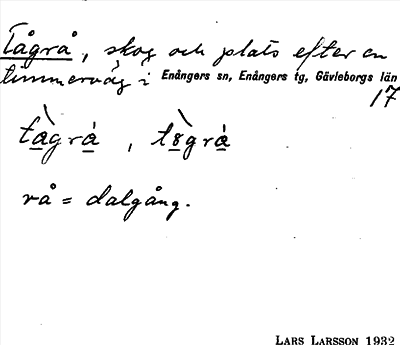 Tågrå, skog och plats efter en
timmerväg i Enångers sn, Enångers tg, Gävleborgs län
17
tàgrá, tògrá
rå = dalgång.
LARS LARSSON 1932